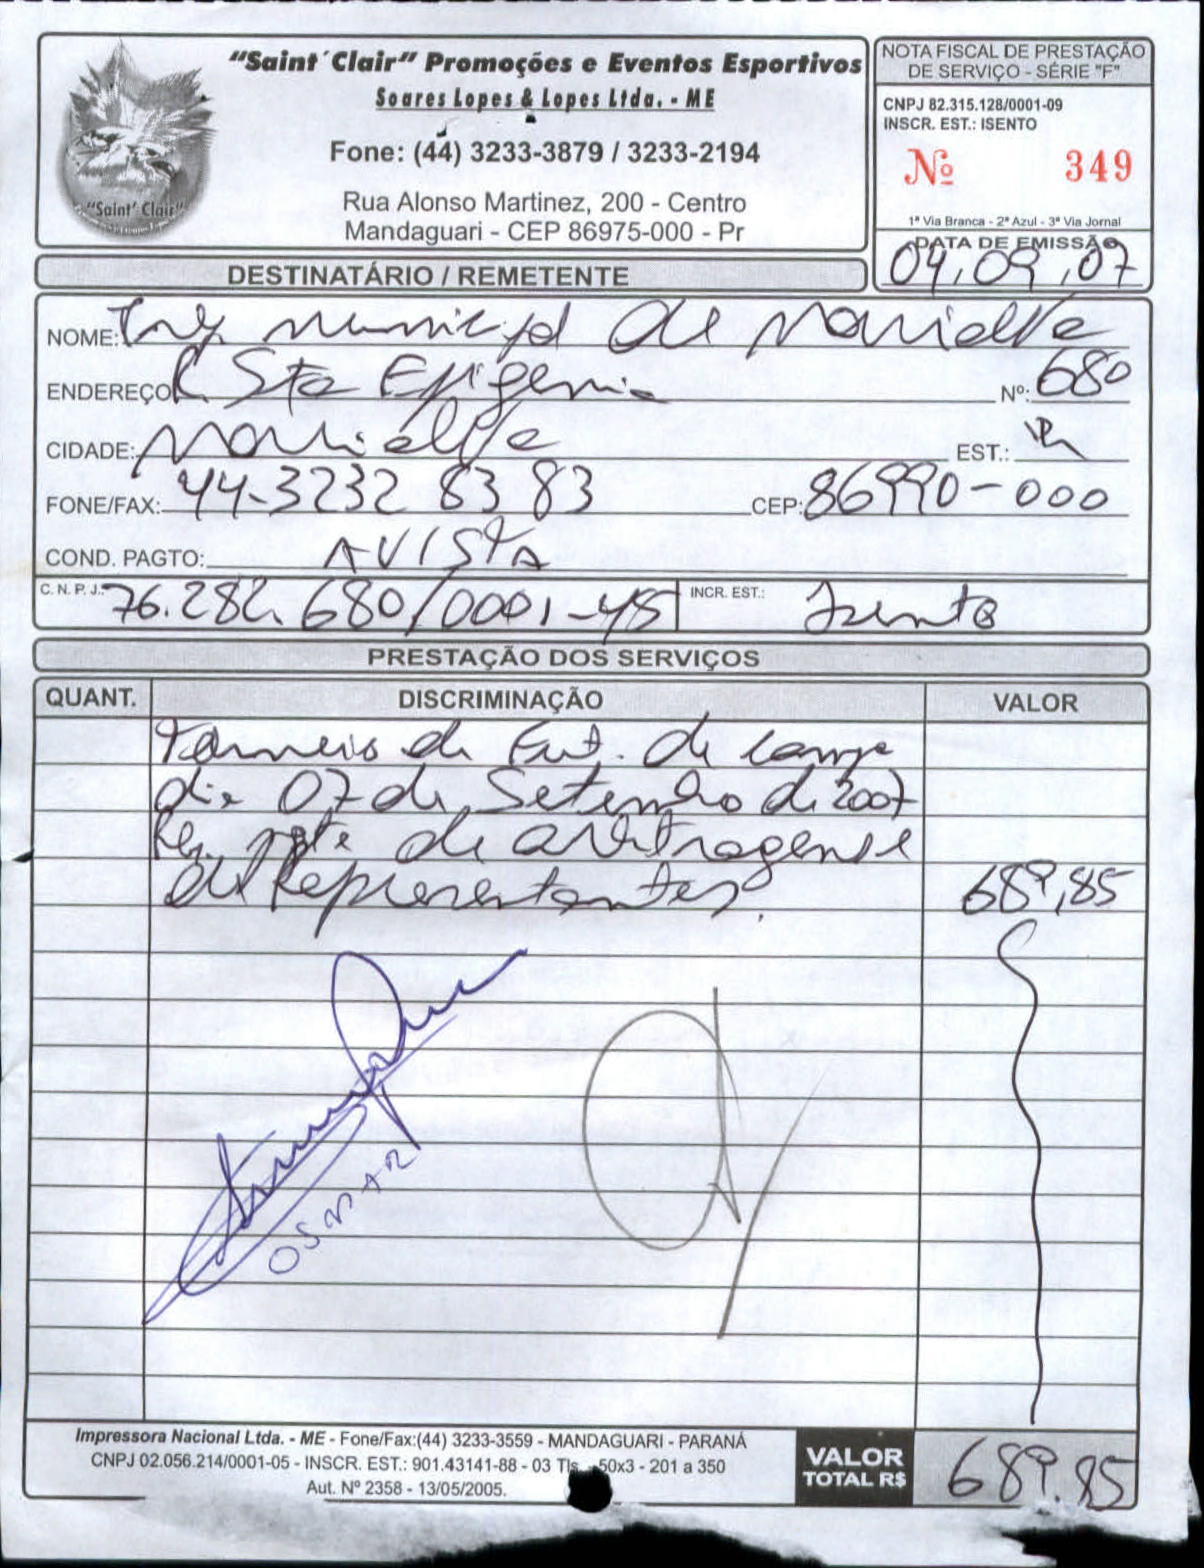 "Saint' Clair" Promoções e Eventos Esportivos
Soares Lopes & Lopes Ltda. - ME
Fone: (44) 3233-3879 / 3233-2194
Rua Alonso Martinez, 200 - Centro
Mandaguari - CEP 86975-000 - Pr
"Saint' Clair"
NOTA FISCAL DE PRESTAÇÃO
DE SERVIÇO - SÉRIE "F"
CNPJ 82.315.128/0001-09
INSCR. EST.: ISENTO
Nº 349
1ª Via Branca - 2ª Azul - 3ª Via Jornal
DATA DE EMISSÃO
04,09,07
DESTINATÁRIO / REMETENTE
NOME: Municipal de Marialva
ENDEREÇO R Sta Efigenia Nº: 680
CIDADE: Marialva EST.: PR
FONE/FAX: 44-3232 83 83 CEP: 86990-000
COND. PAGTO: AVISTA
C.N.P.J.: 76.282.680/0001-45 INCR. EST.: Isento
PRESTAÇÃO DOS SERVIÇOS
QUANT. DISCRIMINAÇÃO VALOR
Torneio de Fut. de campo
dia 07 de Setembro de 2007
Ref. pgto de arbitragens e
de Representantes. 689,85
OSMAR
Impressora Nacional Ltda. - ME - Fone/Fax:(44) 3233-3559 - MANDAGUARI - PARANÁ
CNPJ 02.056.214/0001-05 - INSCR. EST.: 901.43141-88 - 03 Tls. 50x3 - 201 a 350
Aut. Nº 2358 - 13/05/2005.
VALOR
TOTAL R$ 689.85